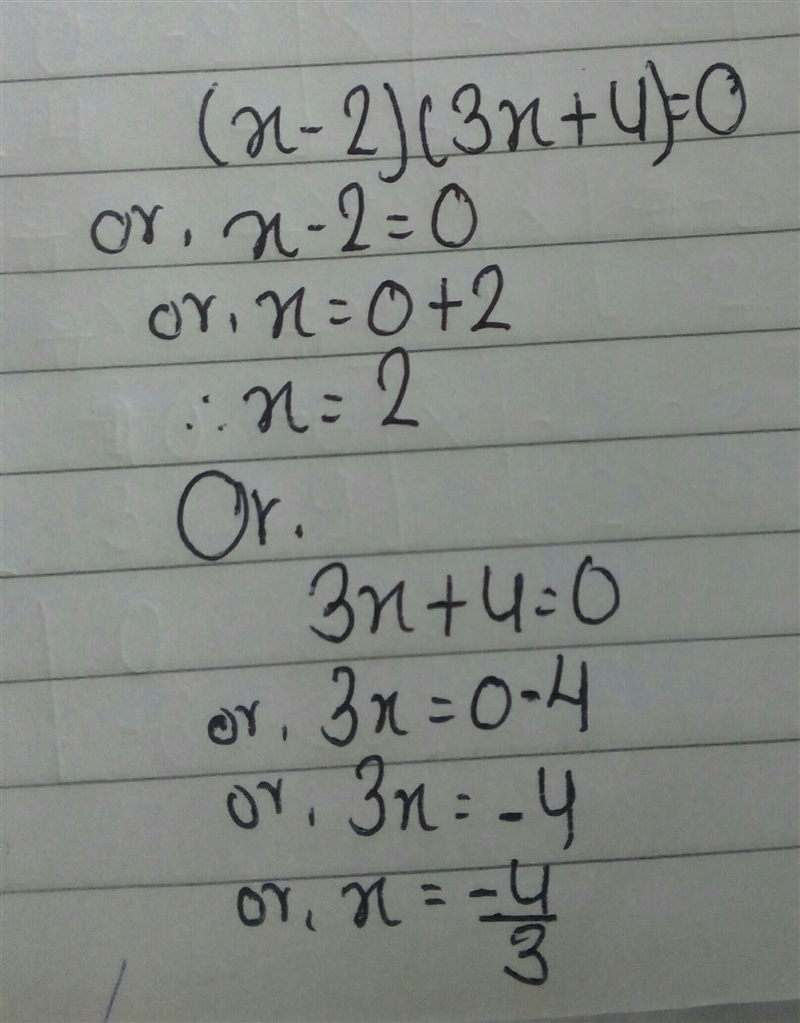 (x-2)(3x+4)=0
or, x-2=0
or, x=0+2
∴x=2
Or.
3x+4=0
or, 3x=0-4
or, 3x=-4
or, x=-4/3